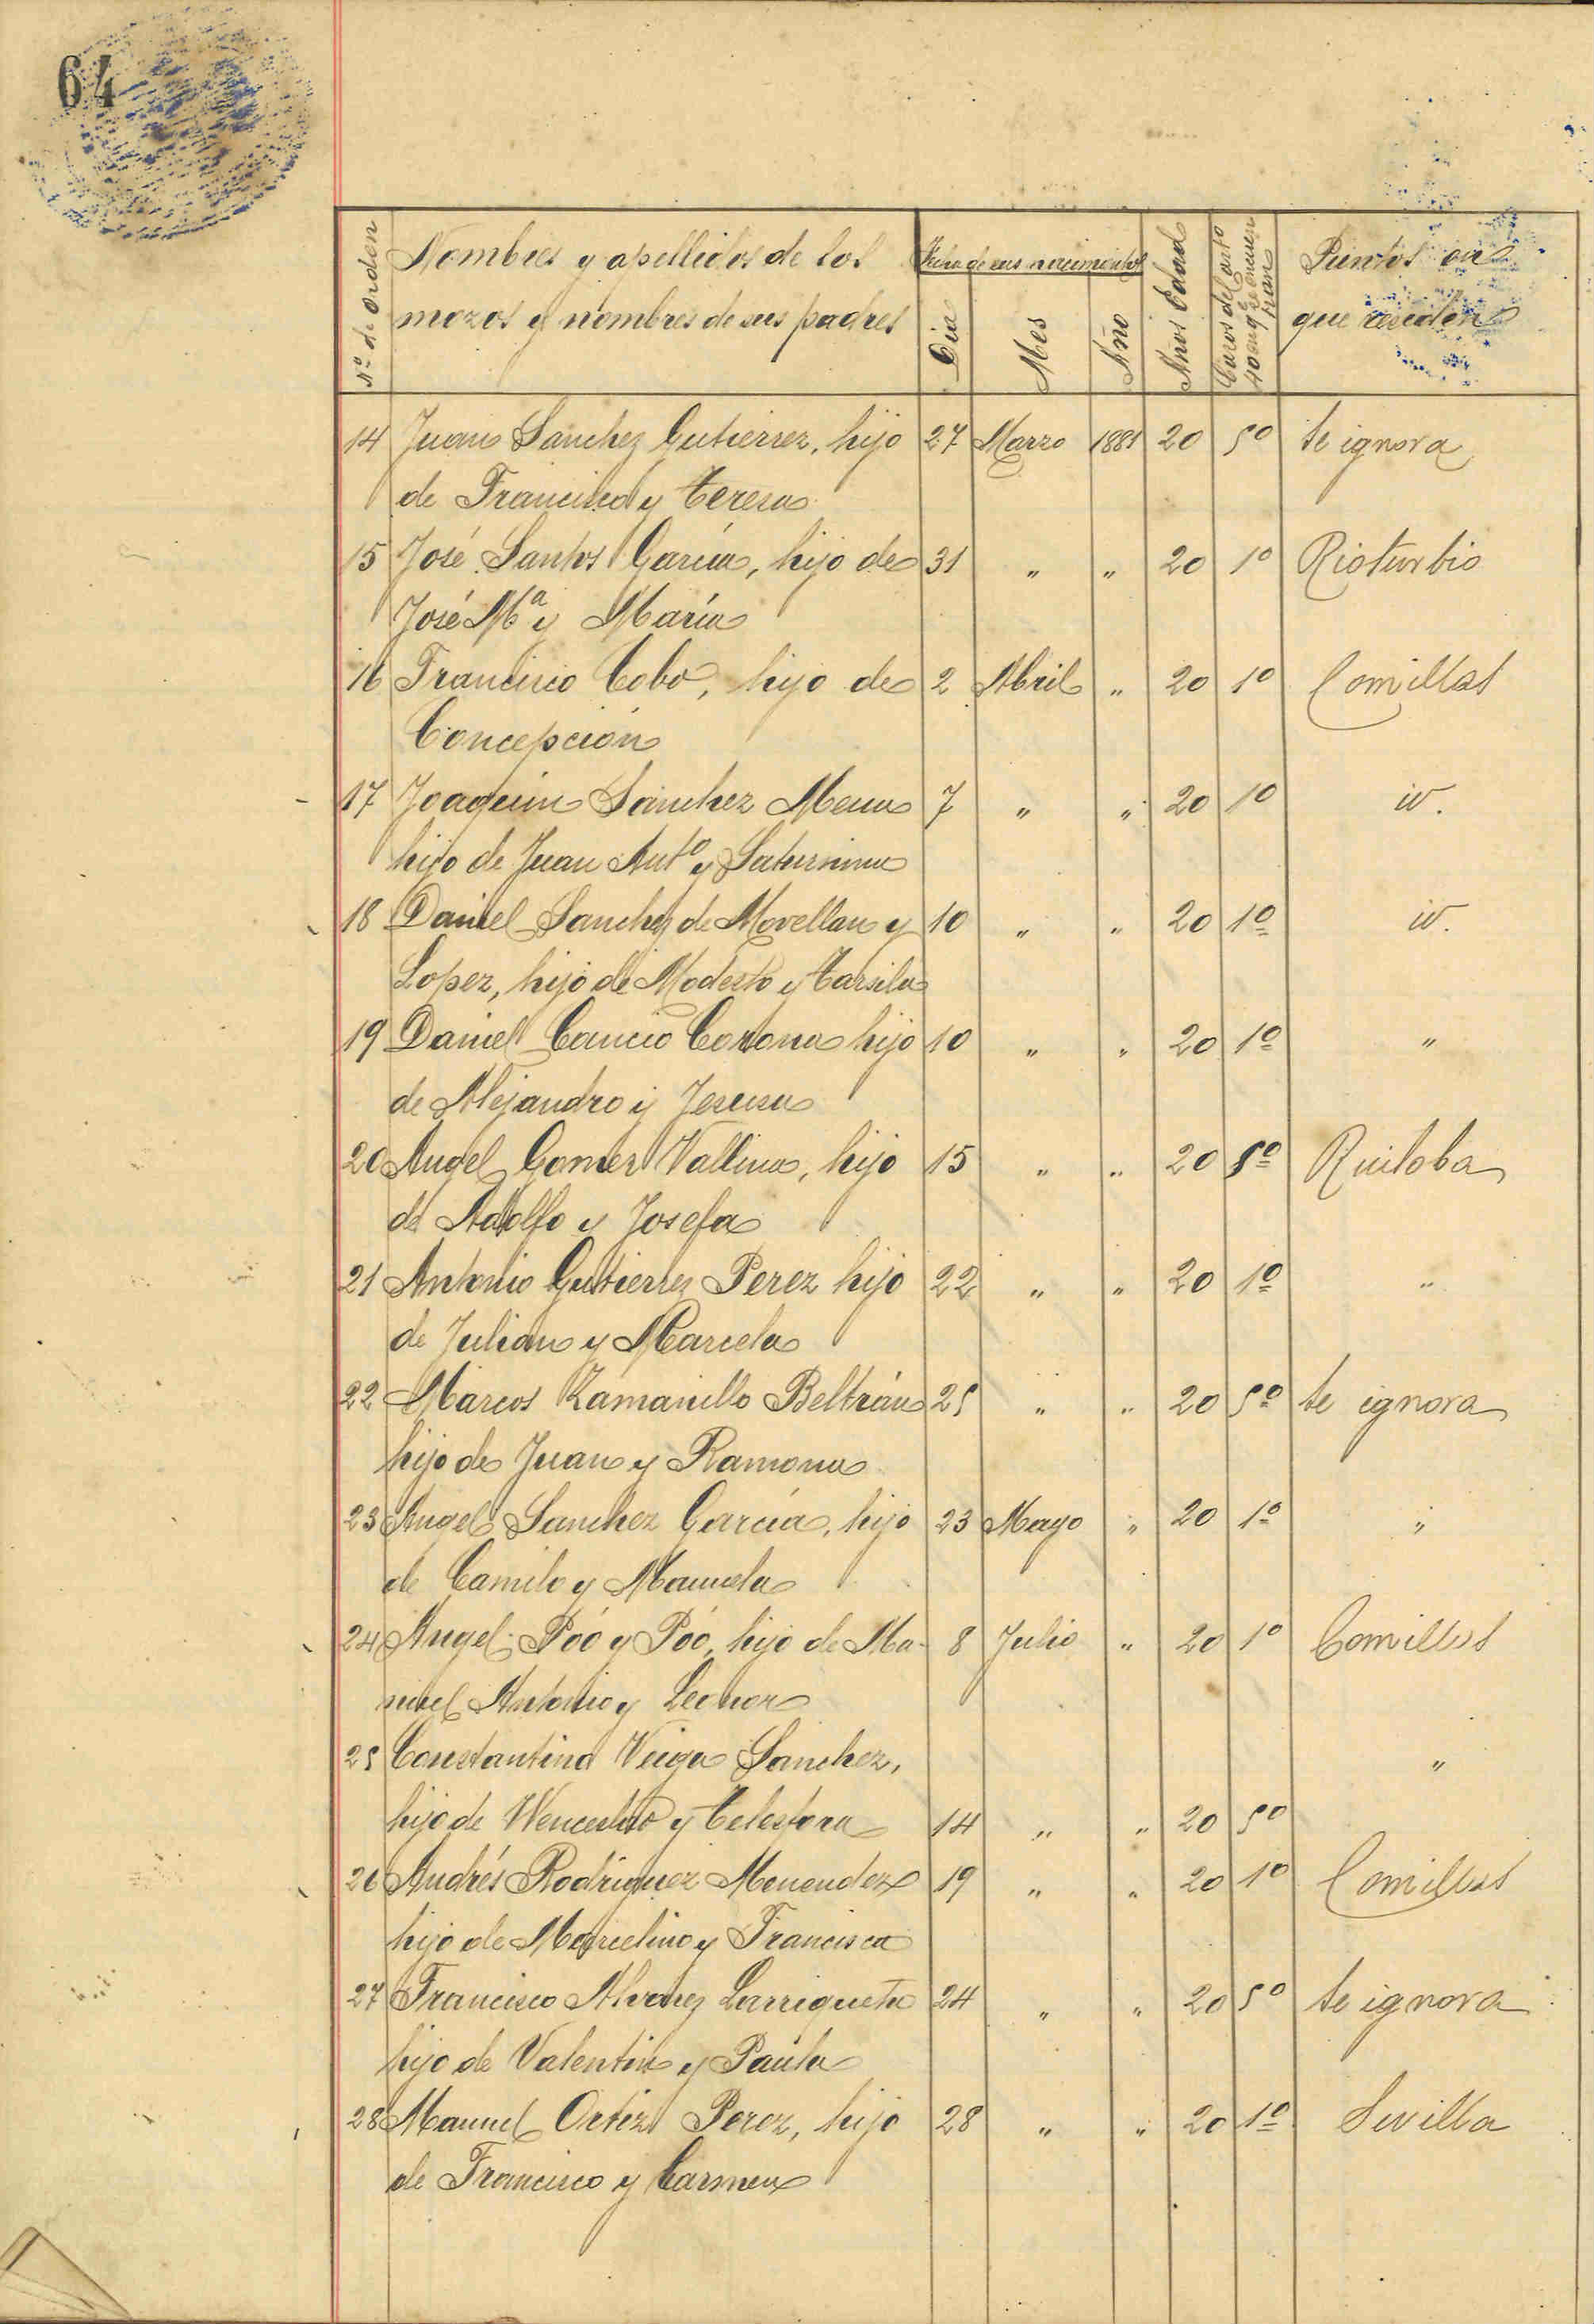 64
Nº de orden
Nombres y apellidos de los
mozos y nombres de sus padres
Fecha de sus nacimientos
Dia
Mes
Año
Años Edad
Casos del artº
40 en q. se encuen
tran
Puntos en
que residen
14 Juan Sanchez Gutierrez, hijo 27 Marzo 1881 20 5º Se ignora
de Francisco y Teresa
15 José Santos García, hijo de 31 " " 20 1º Rioturbio
José Mª y María
16 Francisco Cobo, hijo de 2 Abril " 20 1º Comillas
Concepción
17 Joaquin Sanchez Mena 7 " " 20 1º id.
hijo de Juan Antº y Saturnina
18 Daniel Sanchez de Movellan y 10 " " 20 1º id.
Lopez, hijo de Modesto y Tarsila
19 Daniel Cancio Corona hijo 10 " " 20 1º "
de Alejandro y Jesusa
20 Angel Gomez Vallina, hijo 15 " " 20 5º Ruiloba
de Adolfo y Josefa
21 Antonio Gutierrez Perez hijo 22 " " 20 1º "
de Julian y Marcela
22 Marcos Zamanillo Beltrán 25 " " 20 5º Se ignora
hijo de Juan y Ramona
23 Angel Sanchez García, hijo 23 Mayo " 20 1º "
de Camilo y Manuela
24 Angel Póo y Póo, hijo de Ma- 8 Julio " 20 1º Comillas
nuel Antonio y Leonor
25 Constantino Veiga Sanchez, "
hijo de Wenceslao y Telesfora 14 " " 20 5º
26 Andrés Rodriguez Menendez 19 " " 20 1º Comillas
hijo de Marcelino y Francisca
27 Francisco Alvarez Larrigueta 24 " " 20 5º Se ignora
hijo de Valentin y Paula
28 Manuel Ortiz Perez, hijo 28 " " 20 1º Sevilla
de Francisco y Carmen